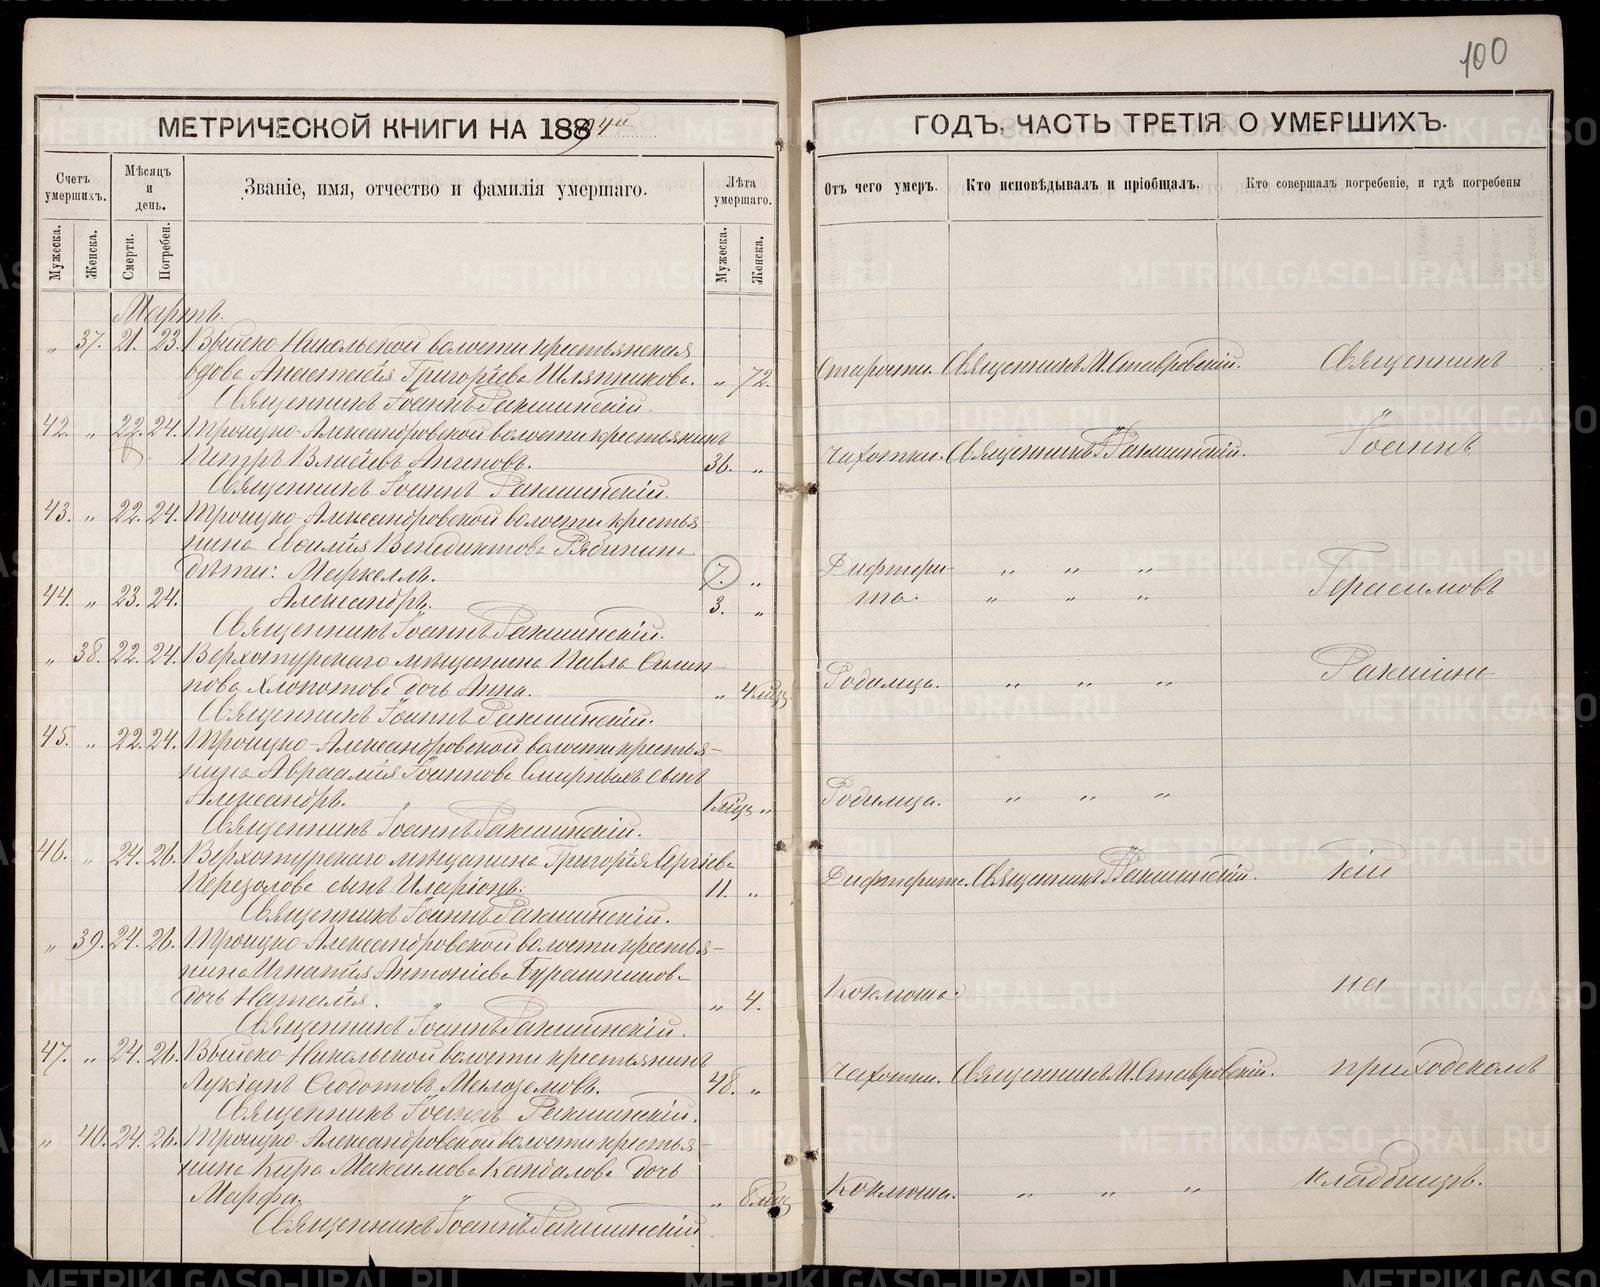 100
МЕТРИЧЕСКОЙ КНИГИ НА 1894й
ГОДЪ, ЧАСТЬ ТРЕТІЯ О УМЕРШИХЪ.
Счетъ умершихъ.
Мѣсяцъ и день.
Званіе, имя, отчество и фамилія умершаго.
Лѣта умершаго.
Отъ чего умеръ.
Кто исповѣдывалъ и пріобщалъ.
Кто совершалъ погребеніе, и гдѣ погребены
Мужеска.
Женска.
Смерти.
Погребен.
Мужеска.
Женска.
Мартъ.
„ 37. 21. 23. Выйско-Никольской волости крестьянская
вдова Анастасія Григоріева Шляпникова. „ 72. Старости. Священникъ И. Ставровскій. Священникъ
Священникъ Іоаннъ Ракшинскій.
42. „ 22. 24. Троицко-Александровской волости крестьянинъ
Петръ Власіевъ 36. „ Чахотки. Священникъ І. Ракшинскій. Іоаннъ
Священникъ Іоаннъ Ракшинскій.
43. „ 22. 24. Троицко-Александровской волости крестья-
нина Василія Венедиктова Рябинина
дѣти: Маркеллъ. 7. „ Дифтери- „ „ „ Герасимовъ
44. „ 23. 24. Александръ. 3. „ та. „ „ „
Священникъ Іоаннъ Ракшинскій.
„ 38. 22. 24. Верхотурскаго мѣщанина Павла Филип-
пова Хлопотова дочь Анна. „ 4 мѣц. Родимца. „ „ „ Ракшин-
Священникъ Іоаннъ Ракшинскій.
45. „ 22. 24. Троицко-Александровской волости крестья-
нина Авраамія Іоаннова Смирныхъ сынъ
Александръ. 1 мѣц. „ Родимца. „ „ „
Священникъ Іоаннъ Ракшинскій.
46. „ 24. 26. Верхотурскаго мѣщанина Григорія Сергіева
Перезолова сынъ Иларіонъ. 11. „ Дифтерита. Священникъ І. Ракшинскій. скій
Священникъ Іоаннъ Ракшинскій.
„ 39. 24. 26. Троицко-Александровской волости крестья-
нина Игнатія Антоніева Бурашникова
дочь Наталія. „ 4. Коклюша. на
Священникъ Іоаннъ Ракшинскій.
47. „ 24. 26. Выйско-Никольской волости крестьянинъ
Лукіанъ Ѳедотовъ Мелоземовъ. 48. „ Чахотки. Священникъ И. Ставровскій. приходскомъ
Священникъ Іоаннъ Ракшинскій.
„ 40. 24. 26. Троицко-Александровской волости крестья-
нина Кира Максимова Кандалова дочь
Марфа. „ 8 мѣц. Коклюша. „ „ „ кладбищѣ.
Священникъ Іоаннъ Ракшинскій
METRIKI.GASO-URAL.RU